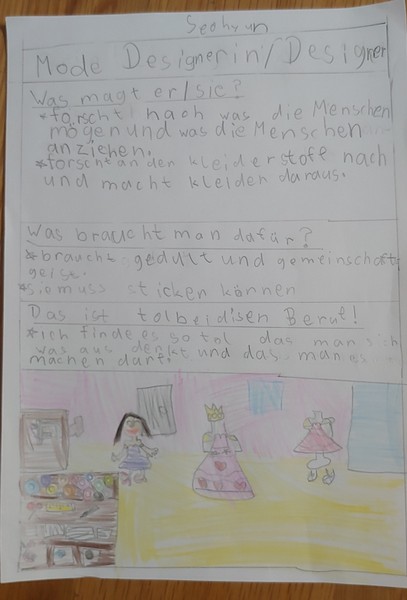 Seohyun
Mode Designerin/Designer
Was magt er/sie?
*forscht nach was die Menschen
mögen und was die Menschen
anziehen.
*forscht an den kleiderstoff nach
und macht kleider daraus.
Was braucht man dafür?
*braucht gedult und gemeinschafts
geist.
*sie muss sticken können
Das ist tol bei disen Beruf!
*ich finde es so tol das man sich
was aus denkt und das man es
machen darf.